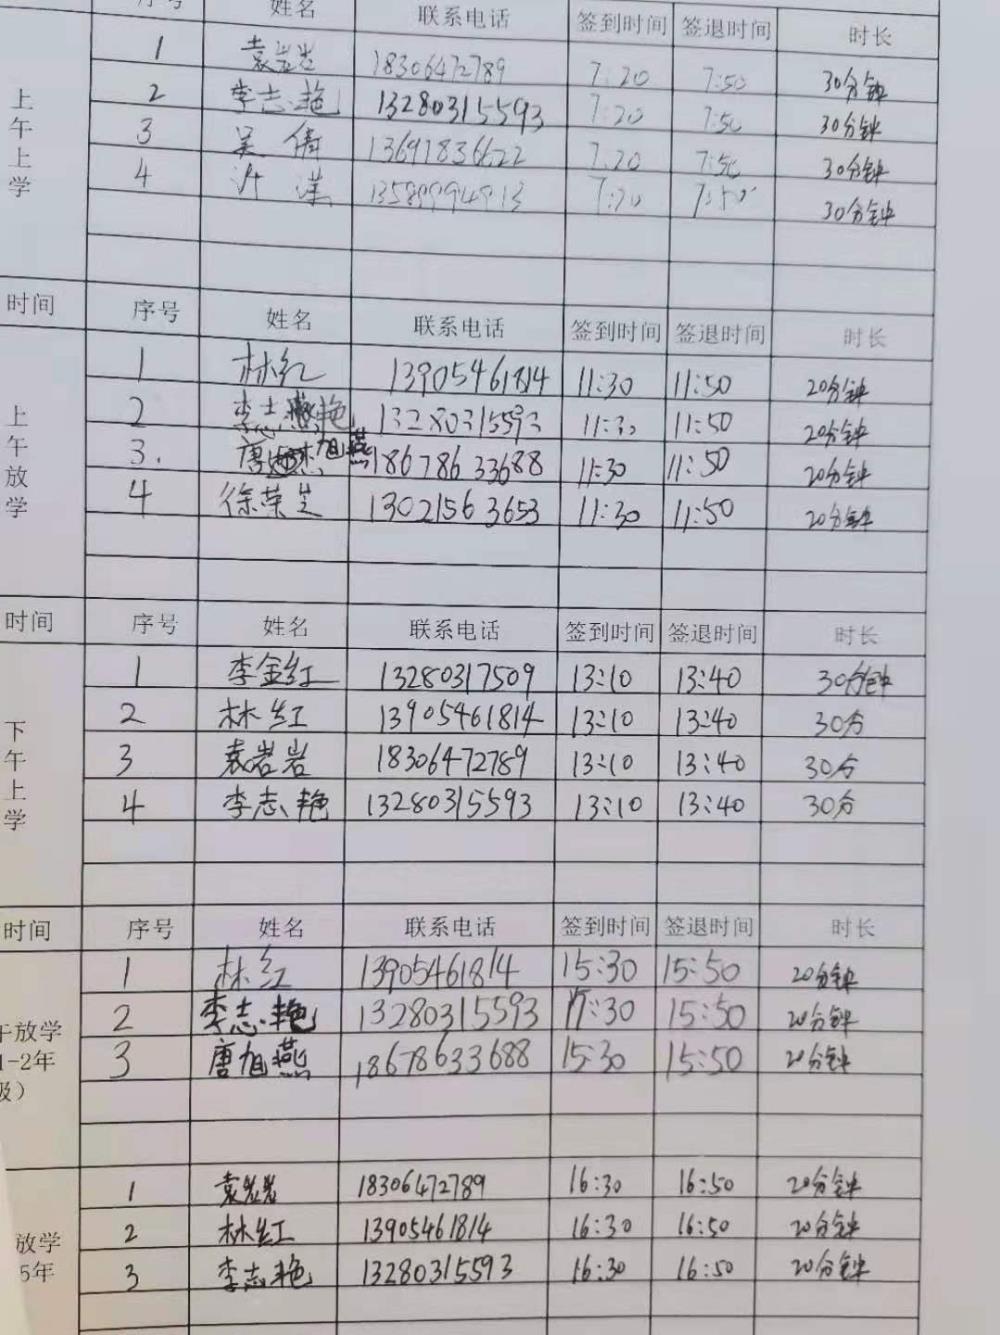 序号 姓名 联系电话 签到时间 签退时间 时长
上午上学
1 袁岩岩 18306472789 7:20 7:50 30分钟
2 李志艳 13280315593 7:20 7:50 30分钟
3 吴倩 13691836622 7:20 7:50 30分钟
4 7:20 7:50 30分钟
时间 序号 姓名 联系电话 签到时间 签退时间 时长
上午放学
1 林红 13905461814 11:30 11:50 20分钟
2 李志艳 13280315593 11:30 11:50 20分钟
3. 唐旭燕 18678633688 11:30 11:50 20分钟
4 徐荣芝 13021563653 11:30 11:50 20分钟
时间 序号 姓名 联系电话 签到时间 签退时间 时长
下午上学
1 李金红 13280317509 13:10 13:40 30分钟
2 林红 13905461814 13:10 13:40 30分
3 袁岩岩 18306472789 13:10 13:40 30分
4 李志艳 13280315593 13:10 13:40 30分
时间 序号 姓名 联系电话 签到时间 签退时间 时长
午放学
1-2年
级）
1 林红 13905461814 15:30 15:50 20分钟
2 李志艳 13280315593 15:30 15:50 20分钟
3 唐旭燕 18678633688 15:30 15:50 20分钟
放学
5年
1 袁岩岩 18306472789 16:30 16:50 20分钟
2 林红 13905461814 16:30 16:50 20分钟
3 李志艳 13280315593 16:30 16:50 20分钟